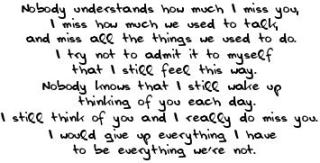 Nobody understands how much I miss you,
I miss how much we used to talk,
and miss all the things we used to do.
I try not to admit it to myself
that I still feel this way.
Nobody knows that I still wake up
thinking of you each day.
I still think of you and I really do miss you.
I would give up everything I have
to be everything we're not.